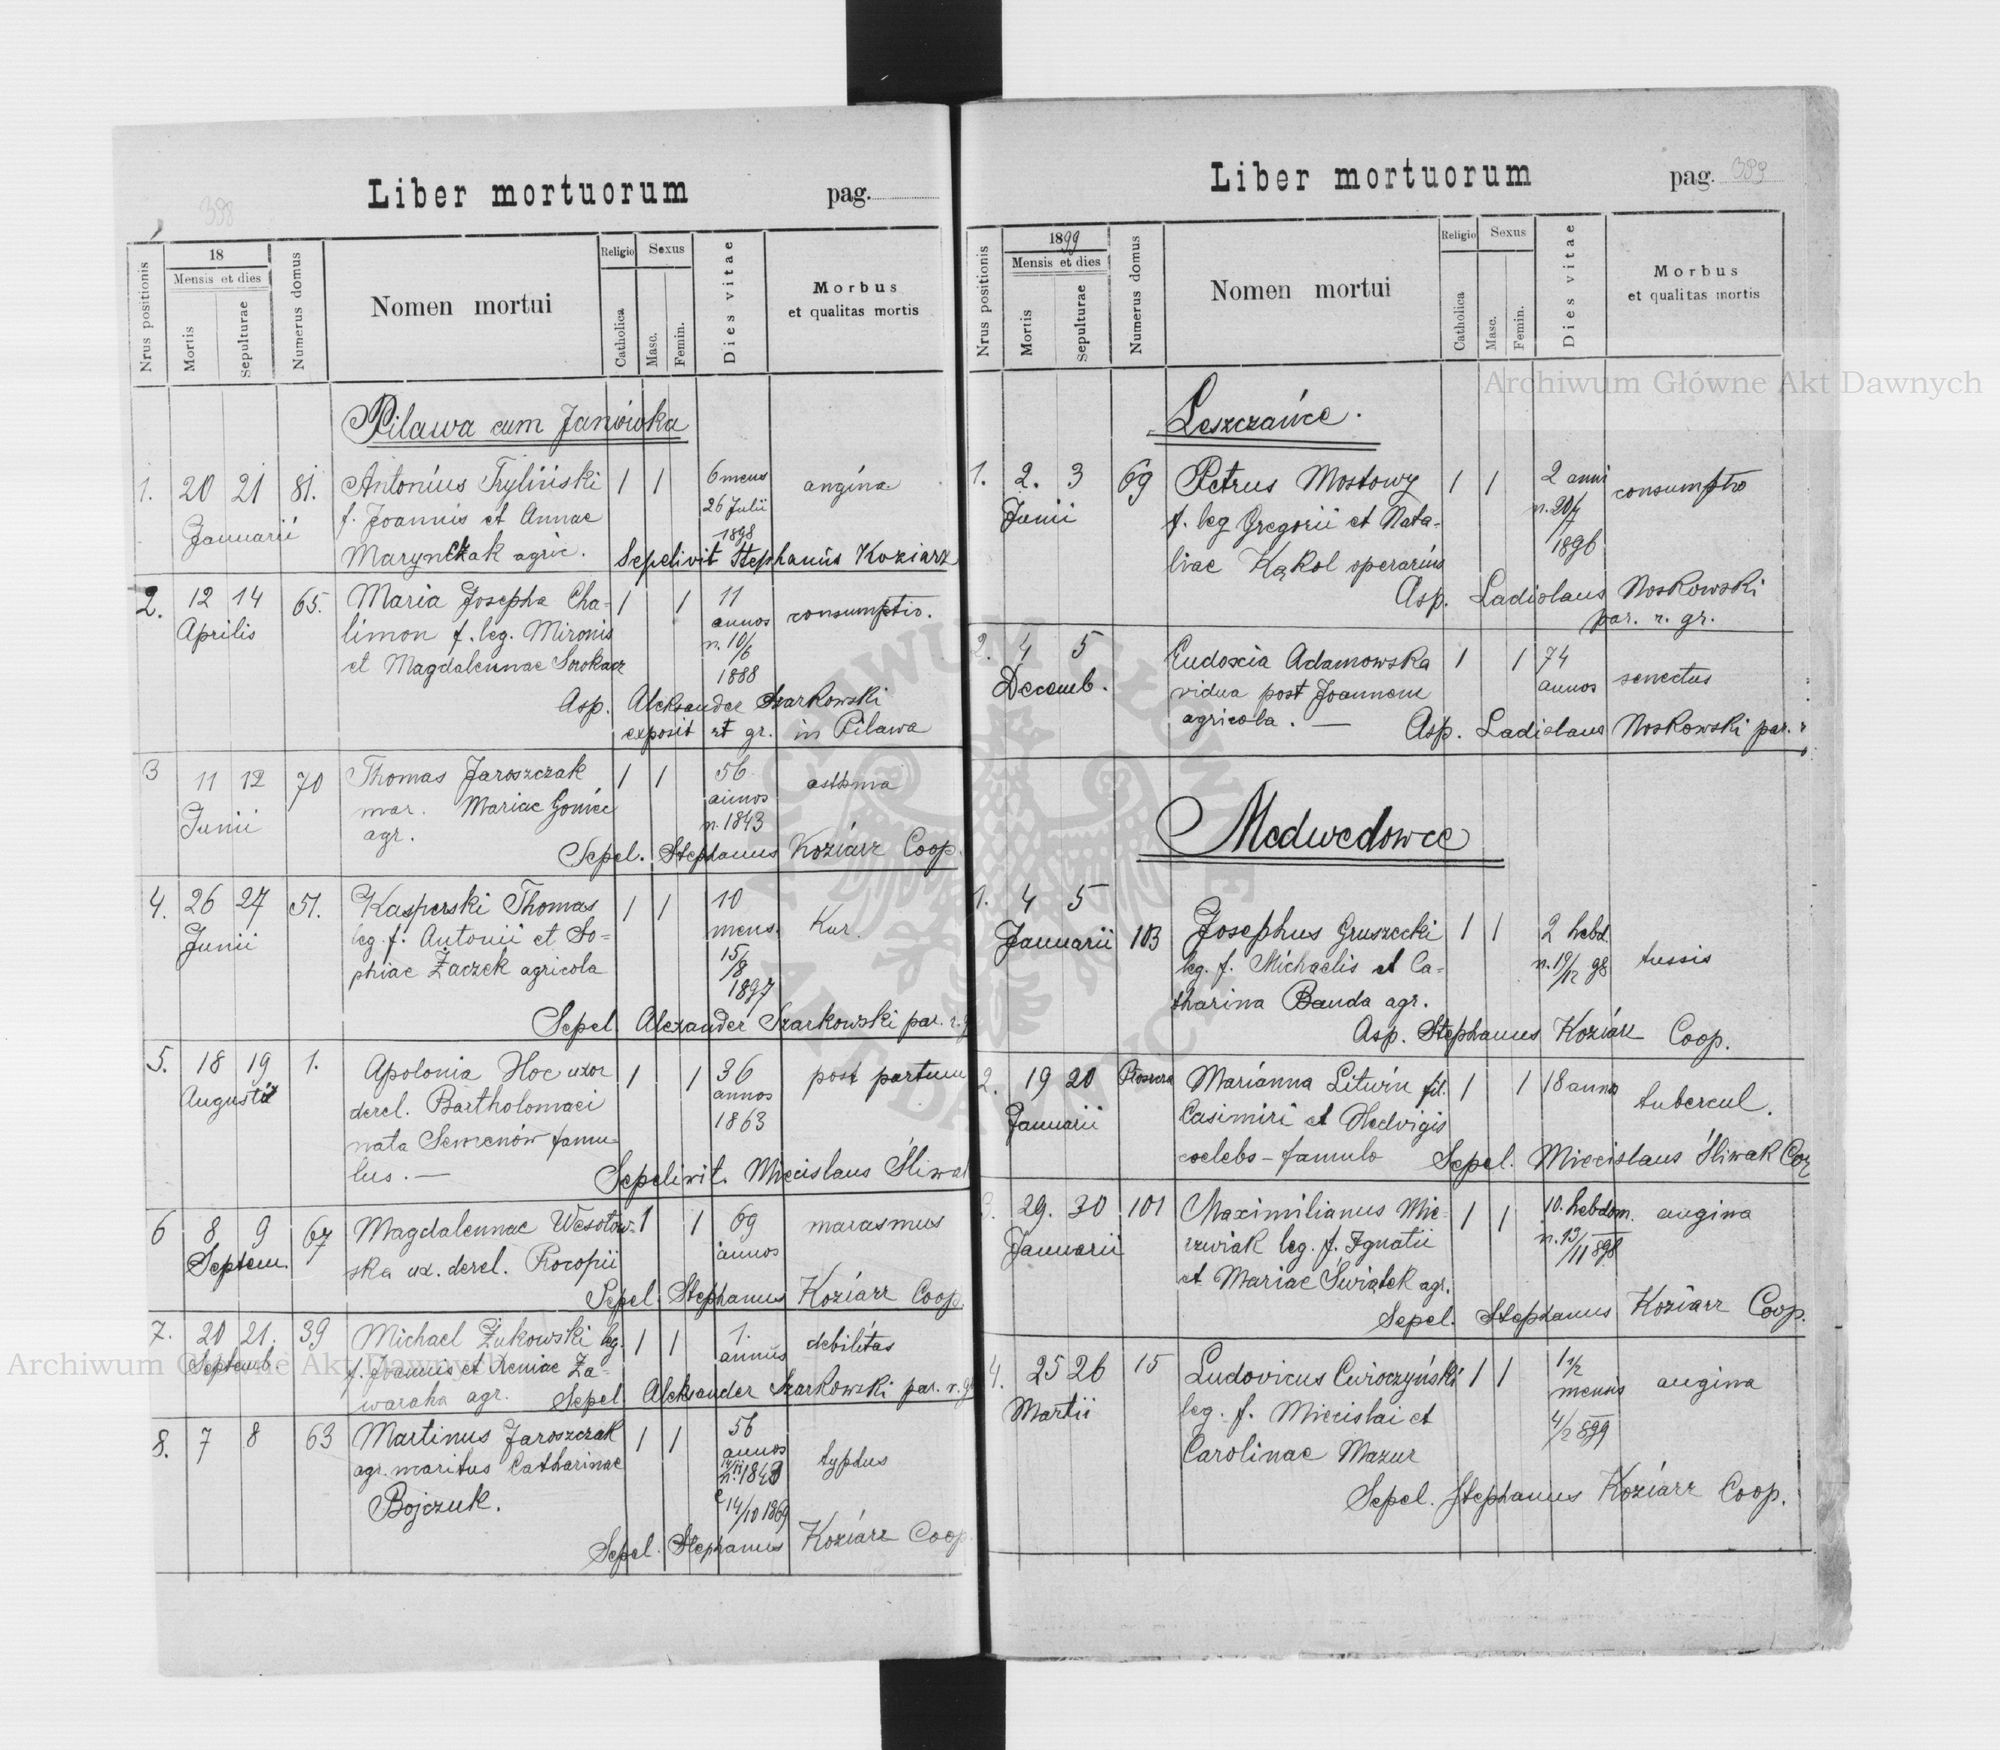 Liber mortuorum
pag.
398
Nrus positionis
18
Mensis et dies
Mortis
Sepulturae
Numerus domus
Nomen mortui
Religio
Catholica
Sexus
Masc.
Femin.
Dies vitae
Morbus
et qualitas mortis
Pilawa cum Janówka
1. 20 21 81. Antonius Tryliński 1 1 6 mens angina
Januarii f. Joannis et Annae 26 Julii
1898
Marynczak agric. Sepelivit Stephanus Koziarz
2. 12 14 65. Maria Josepha Cha- 1 1 11
Aprilis limon f. leg. Mironis annos consumptio.
n. 10/6
et Magdalennae 1888
Asp. Aleksander Szarkowski
exposit rt gr. in Pilawa
3 11 12 70 Thomas Jaroszczak 1 1 56 asthma
Junii mar. Mariae annos
agr. n. 1843
Sepel. Stephanus Koziarz Coop.
4. 26 27 51. Kasperski Thomas 1 1 10
Junii leg. f. Antonii et So- mens. Kur.
phiae Żaczek agricola 15/8
1897
Sepel Alexander Szarkowski par. r. g
5. 18 19 1. Apolonia Hoc uxor 1 1 36 post partum
Augusti derel. Bartholomaei annos
nata famu- 1863
lus. — Sepelivit. Miecislaus Śliwak
6 8 9 67 Magdalennae Wesołow- 1 1 69 marasmus
Septem. ska ux. derel. Procopii annos
Sepel. Stephanus Koziarz Coop.
7. 20 21. 39 Michael Żukowski leg. 1 1 1. debilitas
Septemb. f. Joannis et Xeniae Za- annus
waraha agr. Sepel Aleksander Szarkowski par. r. g
8. 7 8 63 Martinus Jaroszczak 1 1 56
agr. maritus Catharinae annos typhus
Bojczuk. n. 1843
14/10 1869
Sepel. Stephanus Koziarz Coop
Liber mortuorum
pag. 399
Nrus positionis
1899
Mensis et dies
Mortis
Sepulturae
Numerus domus
Nomen mortui
Religio
Catholica
Sexus
Masc.
Femin.
Dies vitae
Morbus
et qualitas mortis
Archiwum Główne Akt Dawnych
Leszczańce.
1. 2. 3 69 Petrus Mostowy 1 1 2 anni consumptio
Junii f. leg Gregorii et Nata- n. 20/7
liae Kąkol operarius 1896
Asp. Ladislaus Noskowski
par. r. gr.
2. 4 5 Eudoxia Adamowska 1 1 74 senectus
Decemb. vidua post Joannem annos
agricola. — Asp. Ladislaus Noskowski par. r
Medwedowce
1. 4 5
Januarii 103 Josephus Gruszecki 1 1 2 hebd. tussis
leg. f. Michaelis et Ca- n. 19/12 98
tharina Banda agr.
Asp. Stephanus Koziarz Coop.
2. 19 20 Marianna Litwin fil. 1 1 18 anno tubercul.
Januarii Casimiri et Hedvigis
coelebs - famulo Sepel. Miecislaus Śliwak
3. 29. 30 101 Maximilianus Mie- 1 1 10. hebdom. angina
Januarii rzwiak leg. f. Ignatii n. 13/11 898
et Mariae Świątek agr.
Sepel. Stephanus Koziarz Coop.
4. 25 26 15 Ludovicus Cwioczyński 1 1 1 1/2 angina
Martii leg. f. Miecislai et mensis
Carolinae Mazur 4/2 899
Sepel. Stephanus Koziarz Coop.
Archiwum Główne Akt Dawnych
ARCHIWUM GŁÓWNE AKT DAWNYCH